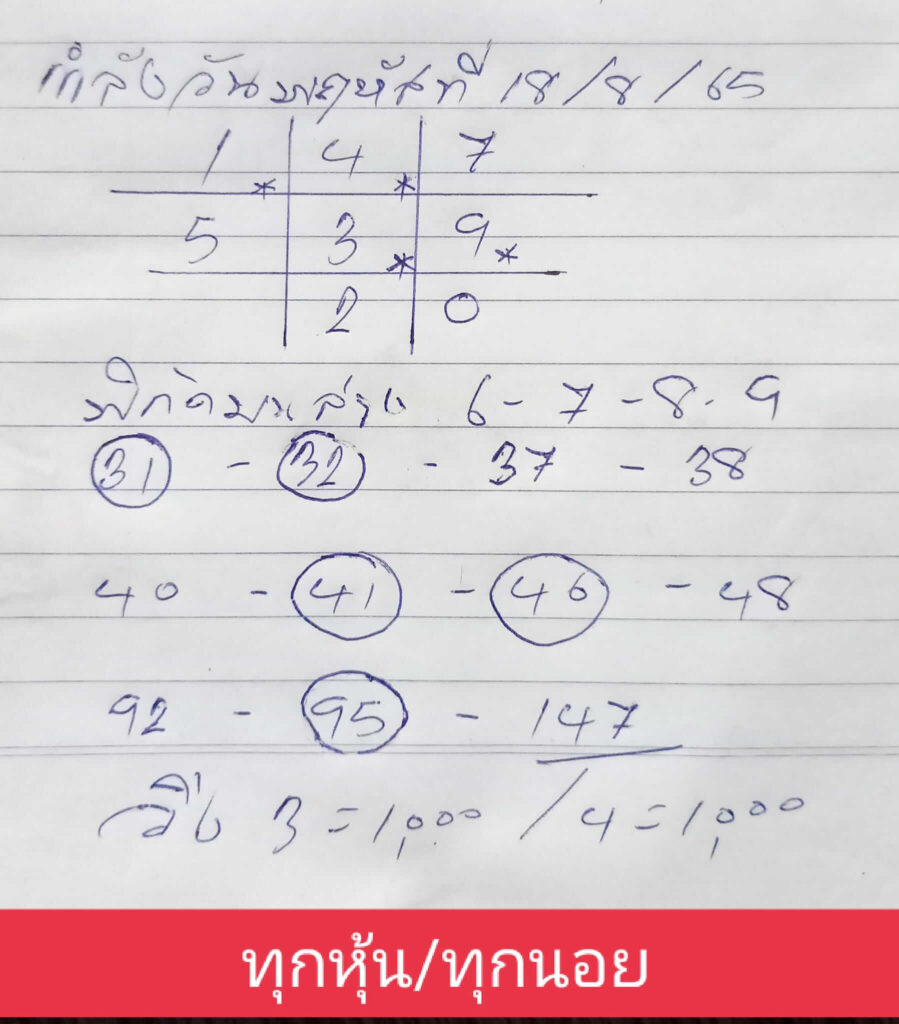 กำลังวันพฤหัสที่ 18/8/65
1 * 4 * 7
5 3 * 9 *
2 0
พิกัดบนล่าง 6 - 7 - 8 . 9
31 - 32 - 37 - 38
40 - 41 - 46 - 48
92 - 95 - 147
วิ่ง 3 = 1,000 / 4 = 1,000
ทุกหุ้น/ทุกนอย